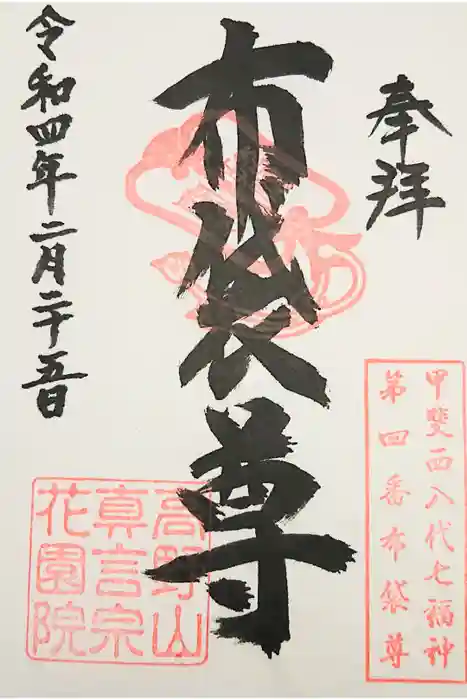 奉拝
甲斐西八代七福神
第四番布袋尊
布袋尊
高野山
真言宗
花園院
令和四年二月二十五日